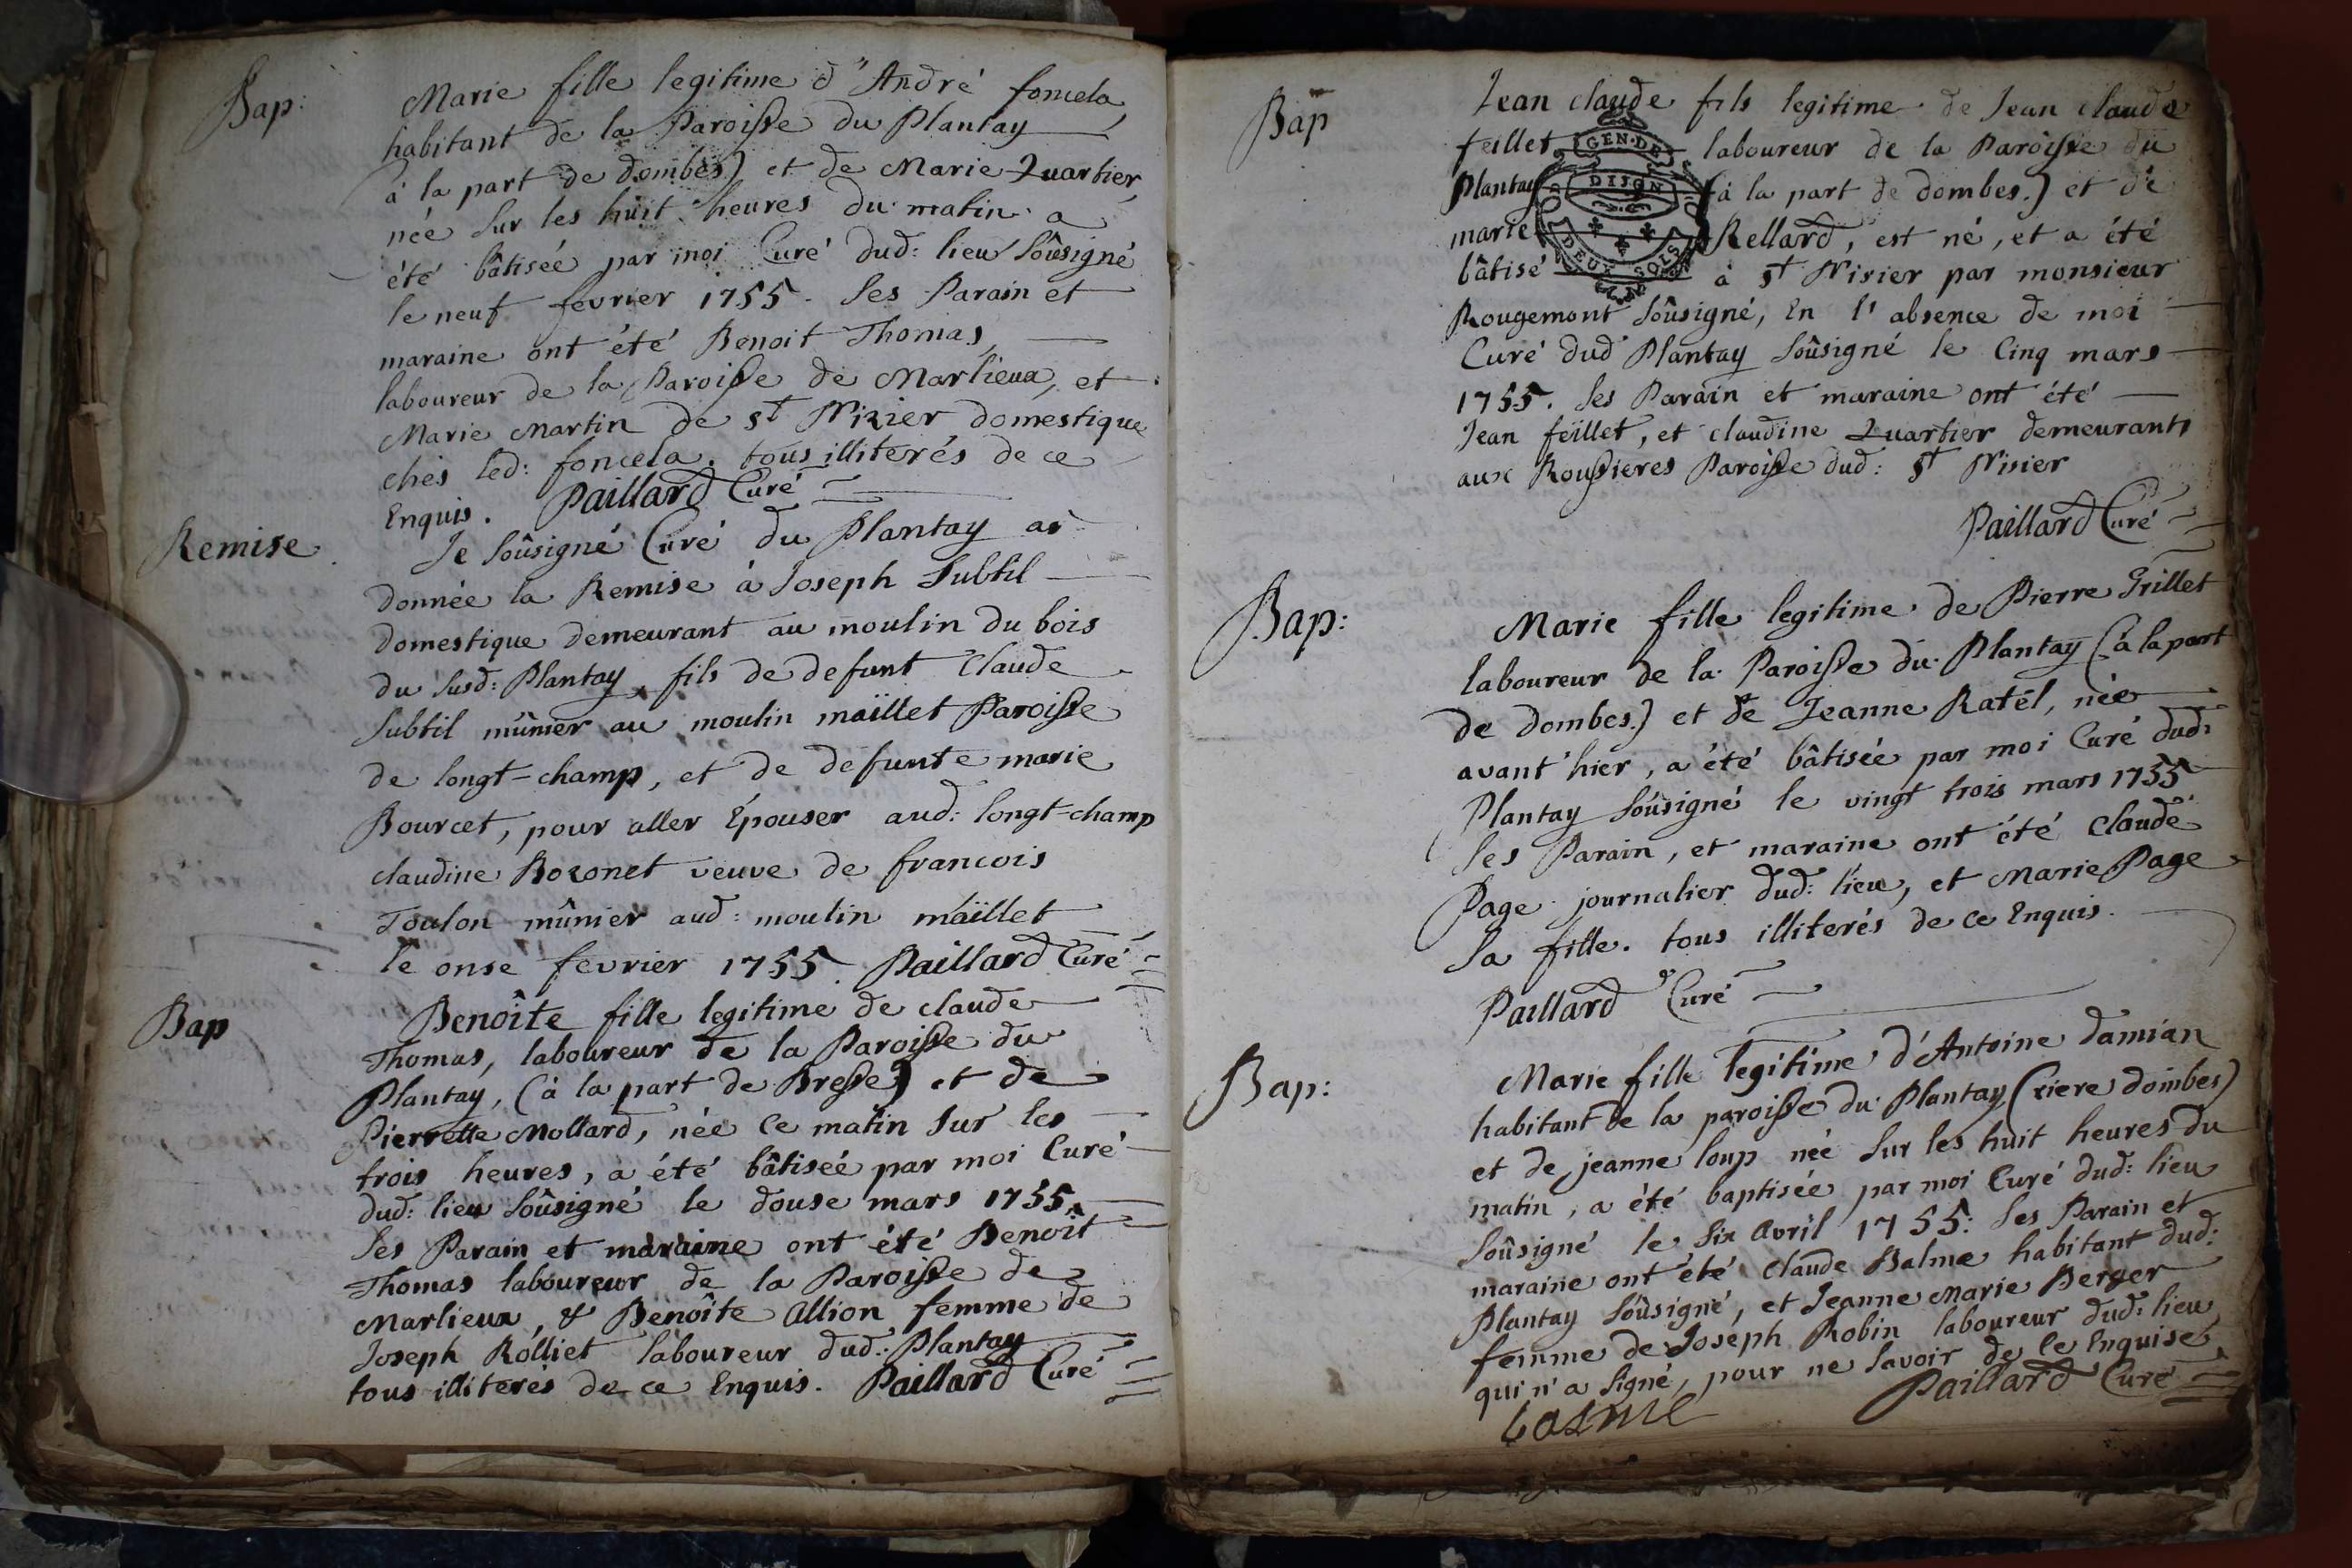 Bap:
Marie fille legitime d'André foncela,
habitant de la Paroisse du Plantay
(à la part de dombes) et de Marie Quartier,
née sur les huit heures du matin a
été bâtisée par moi Curé dud: lieu soûsigné
le neuf fevrier 1755. Ses Parain et
maraine ont été Benoit Thomas,
laboureur de la Paroisse de Marlieux, et
Marie Martin de St Nizier domestique
chés led: foncela. tous illiterés de ce
Enquis. Paillard Curé
Remise
Je soûsigné Curé du Plantay ai
donnée la Remise à Joseph Subtil
domestique demeurant au moulin du bois
du susd: Plantay, fils de defunt Claude
Subtil mûnier au moulin maïllet Paroisse
de longt-champ, et de defunte marie
Bourcet, pour aller Épouser aud: longt-champ
claudine Bozonet veuve de francois
Toulon mûnier aud: moulin maïllet
le onse fevrier 1755. Paillard Curé
Bap
Benoîte fille legitime de claude
Thomas, laboureur de la Paroisse du
Plantay, (à la part de Bresse) et de
Pierrette Mollard, née ce matin sur les
trois heures, a été bâtisée par moi Curé
dud: lieu soûsigné le douse mars 1755.
Ses Parain et maraine ont été Benoit
Thomas laboureur de la Paroisse de
Marlieux, & Benoîte Allion femme de
Joseph Rolliet laboureur dud: Plantay
tous illiterés de ce Enquis. Paillard Curé
Bap
Jean claude fils legitime de Jean claude
feillet laboureur de la Paroisse du
Plantay (à la part de dombes.) et de
marie Rellard, est né, et a été
bâtisé à St Nisier par monsieur
Rougemont soûsigné, En l'absence de moi
Curé dud Plantay soûsigné le Cinq mars
1755. Ses Parain et maraine ont été
Jean feïllet, et claudine Quartier demeurants
aux Roussieres Paroisse dud: St Nisier
Paillard Curé
GEN. DE
DIJON
DEUX SOLS
Bap:
Marie fille legitime de Pierre Grillet
laboureur de la Paroisse du Plantay (à la part
de dombes.) et de Jeanne Ratel, née
avant hier, a été bâtisée par moi Curé dud:
Plantay soûsigné le vingt trois mars 1755
Ses Parain, et maraine ont été claude
Page journalier dud: lieu, et Marie Page
Sa fille. tous illiterés de ce Enquis.
Paillard Curé
Bap:
Marie fille legitime d'Antoine damian
habitant de la paroisse du Plantay (riere dombes)
et de jeanne loup née sur les huit heures du
matin, a été baptisée par moi Curé dud: lieu
soûsigné le six Avril 1755: Ses Parain et
maraine ont été claude Balme habitant dud:
Plantay soûsigné, et Jeanne Marie Berger
femme de Joseph Robin laboureur dud: lieu
qui n'a signé, pour ne savoir de ce Enquise
Paillard Curé